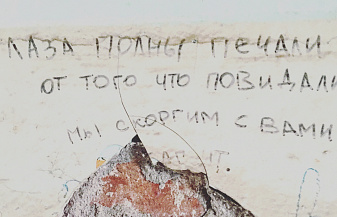 ЛАЗА ПОЛНЫ ПЕЧАЛИ
ОТ ТОГО ЧТО ПОВИДАЛИ
МЫ СКОРГИМ С ВАМИ